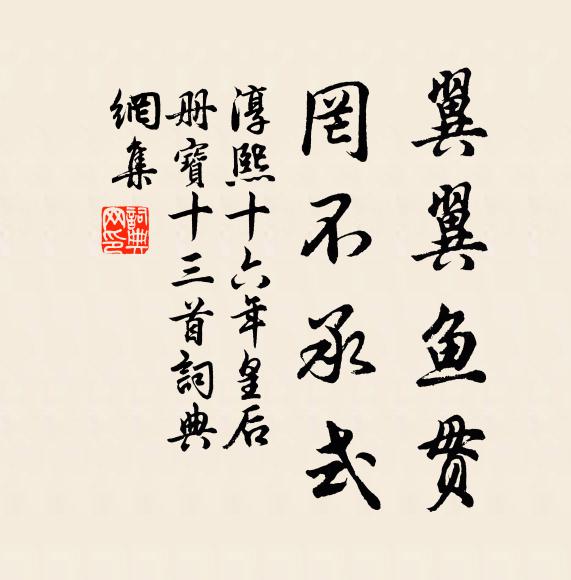 翼翼鱼贯
罔不承式
淳熙十六年皇后
册寶十三首詞典
網集
詞典網印